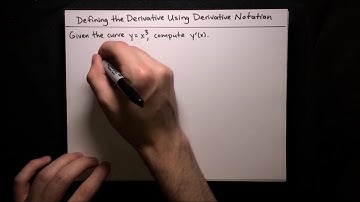 Defining the Derivative Using Derivative Notation
Given the curve y = x³, compute y'(x).